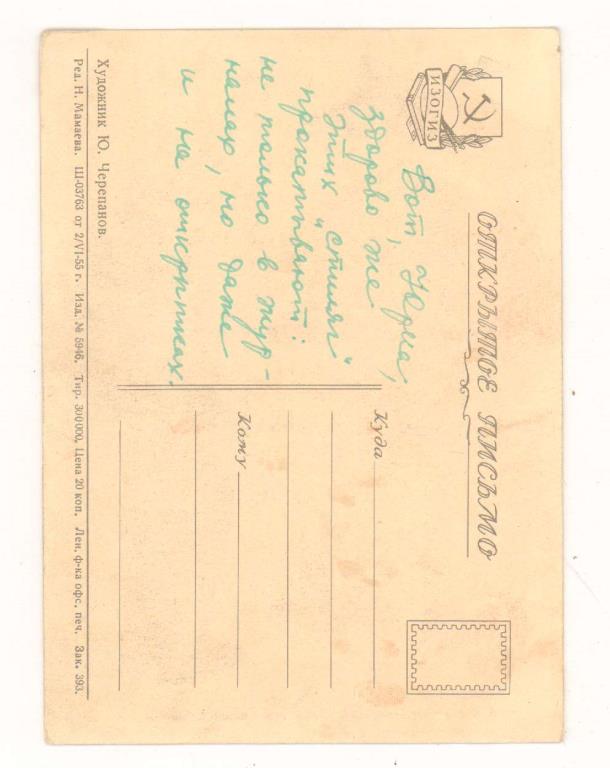 ИЗОГИЗ
ОТКРЫТОЕ ПИСЬМО
Вот, Юрма,
здорово же
этих "стиляг"
прохватывают:
не только в жур-
налах, но даже
и на открытках.
Куда
Кому
Художник Ю. Черепанов.
Ред. Н. Мамаева. Ш-03763 от 2/VI-55 г. Изд. № 5946. Тир. 300000, Цена 20 коп. Лен. ф-ка офс. печ. Зак. 393.